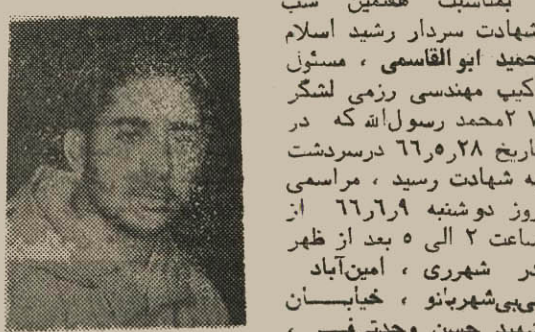 بمناسبت هفتمین شب
شهادت سردار رشید اسلام
حمید ابوالقاسمی ، مسئول
اکیپ مهندسی رزمی لشگر
۲۷ محمد رسول‌الله که در
تاریخ ۶۶٫۵٫۲۸ درسردشت
به شهادت رسید ، مراسمی
روز دوشنبه ۶۶٫۶٫۹ از
ساعت ۲ الی ۵ بعد از ظهر
در شهرری ، امین‌آباد
بی‌بی‌شهربانو ، خیابان
شهید حسن وحدتی‌فر ،